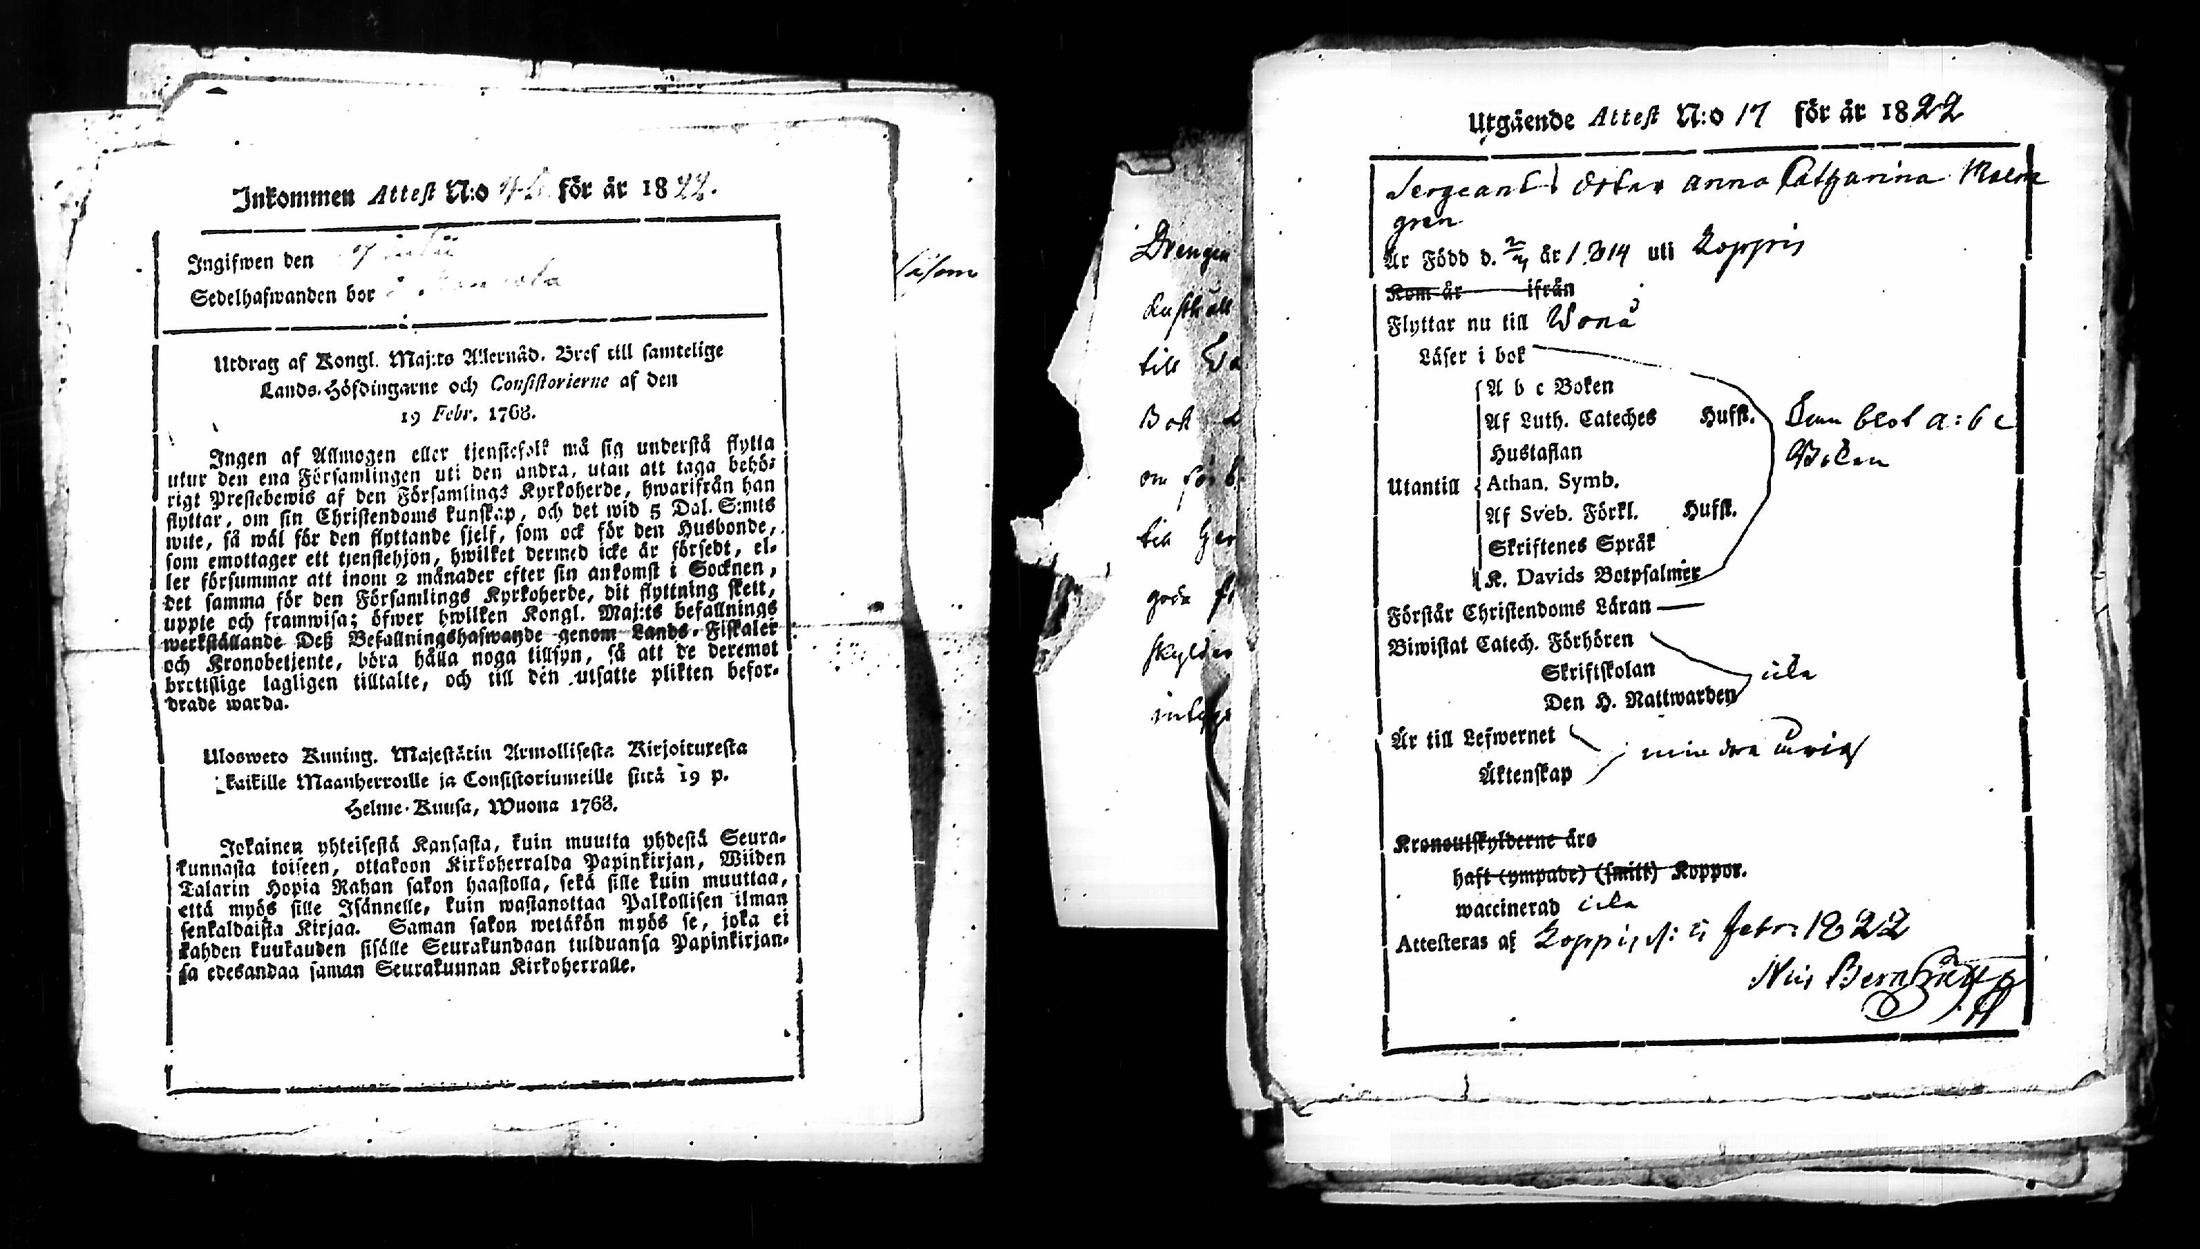 Inkommen Attest N:o för år 1822.
Ingifwen den
Sedelhafwanden bor
Utdrag af Kongl. Maj:ts Allernåd. Bref till samtelige
Lands-Höfdingarne och Consistorierne af den
19 Febr. 1768.
Ingen af Allmogen eller tjenstefolk må sig understå flytta
utur den ena Församlingen uti den andra, utan att taga behö-
rigt Prestebewis af den Församlings Kyrkoherde, hwarifrån han
flyttar, om sin Christendoms kunskap, och det wid 5 Dal. S:mts
wite, så wäl för den flyttande sjelf, som ock för den Husbonde,
som emottager ett tjenstehjon, hwilket dermed icke är försedt, el-
ler försummar att inom 2 månader efter sin ankomst i Socknen,
det samma för den Församlings Kyrkoherde, dit flyttning skett,
uppte och framwisa; öfwer hwilken Kongl. Maj:ts befallnings
werkställande Deß Befallningshafwande genom Lands-Fiskaler
och Kronobetjente, böra hålla noga tillsyn, så att de deremot
brottslige lagligen tilltalte, och till den utsatte plikten befor-
drade warda.
Ulosweto Kuning. Majestätin Armollisesta Kirjoituxesta
kaikille Maanherroille ja Consistoriumeille siitä 19 p.
Helme-Kuusa, Wuona 1768.
Jokainen yhteisestä Kansasta, kuin muutta yhdestä Seura-
kunnasta toiseen, ottakoon Kirkoherralda Papinkirjan, Wiiden
Talarin Hopia Rahan sakon haastolla, sekä sille kuin muuttaa,
että myös sille Isännelle, kuin wastanottaa Palkollisen ilman
senkaldaista Kirjaa. Saman sakon wetäkön myös se, joka ei
kahden kuukauden sisälle Seurakundaan tulduansa Papinkirjan-
sa edesandaa saman Seurakunnan Kirkoherralle.
såsom
Drengen
till
Bok
om
till
goda
Utgående Attest N:o 17 för år 1822
Sergeants dotter Anna Catharina Malm
gren
Är Född d. 2/4 år 1814 uti Koppis
Kom år ifrån
Flyttar nu till Wörå
Läser i bok
A b c Boken
Af Luth. Cateches Hufst.
Hustaflan
Utantill Athan. Symb.
Af Sveb. Förkl. Hufst.
Skriftenes Språk
K. Davids Botpsalmer
blot a: b c
Boken
Förstår Christendoms Läran
Biwistat Catech. Förhören
Skriftskolan
Den H. Nattwarden
icke
Är till Lefwernet
Äktenskap
minderårig
Kronoutskylderne äro
haft (ympade) (smitt) Koppor.
waccinerad icke
Attesteras af Koppis d: febr: 1822
Nils